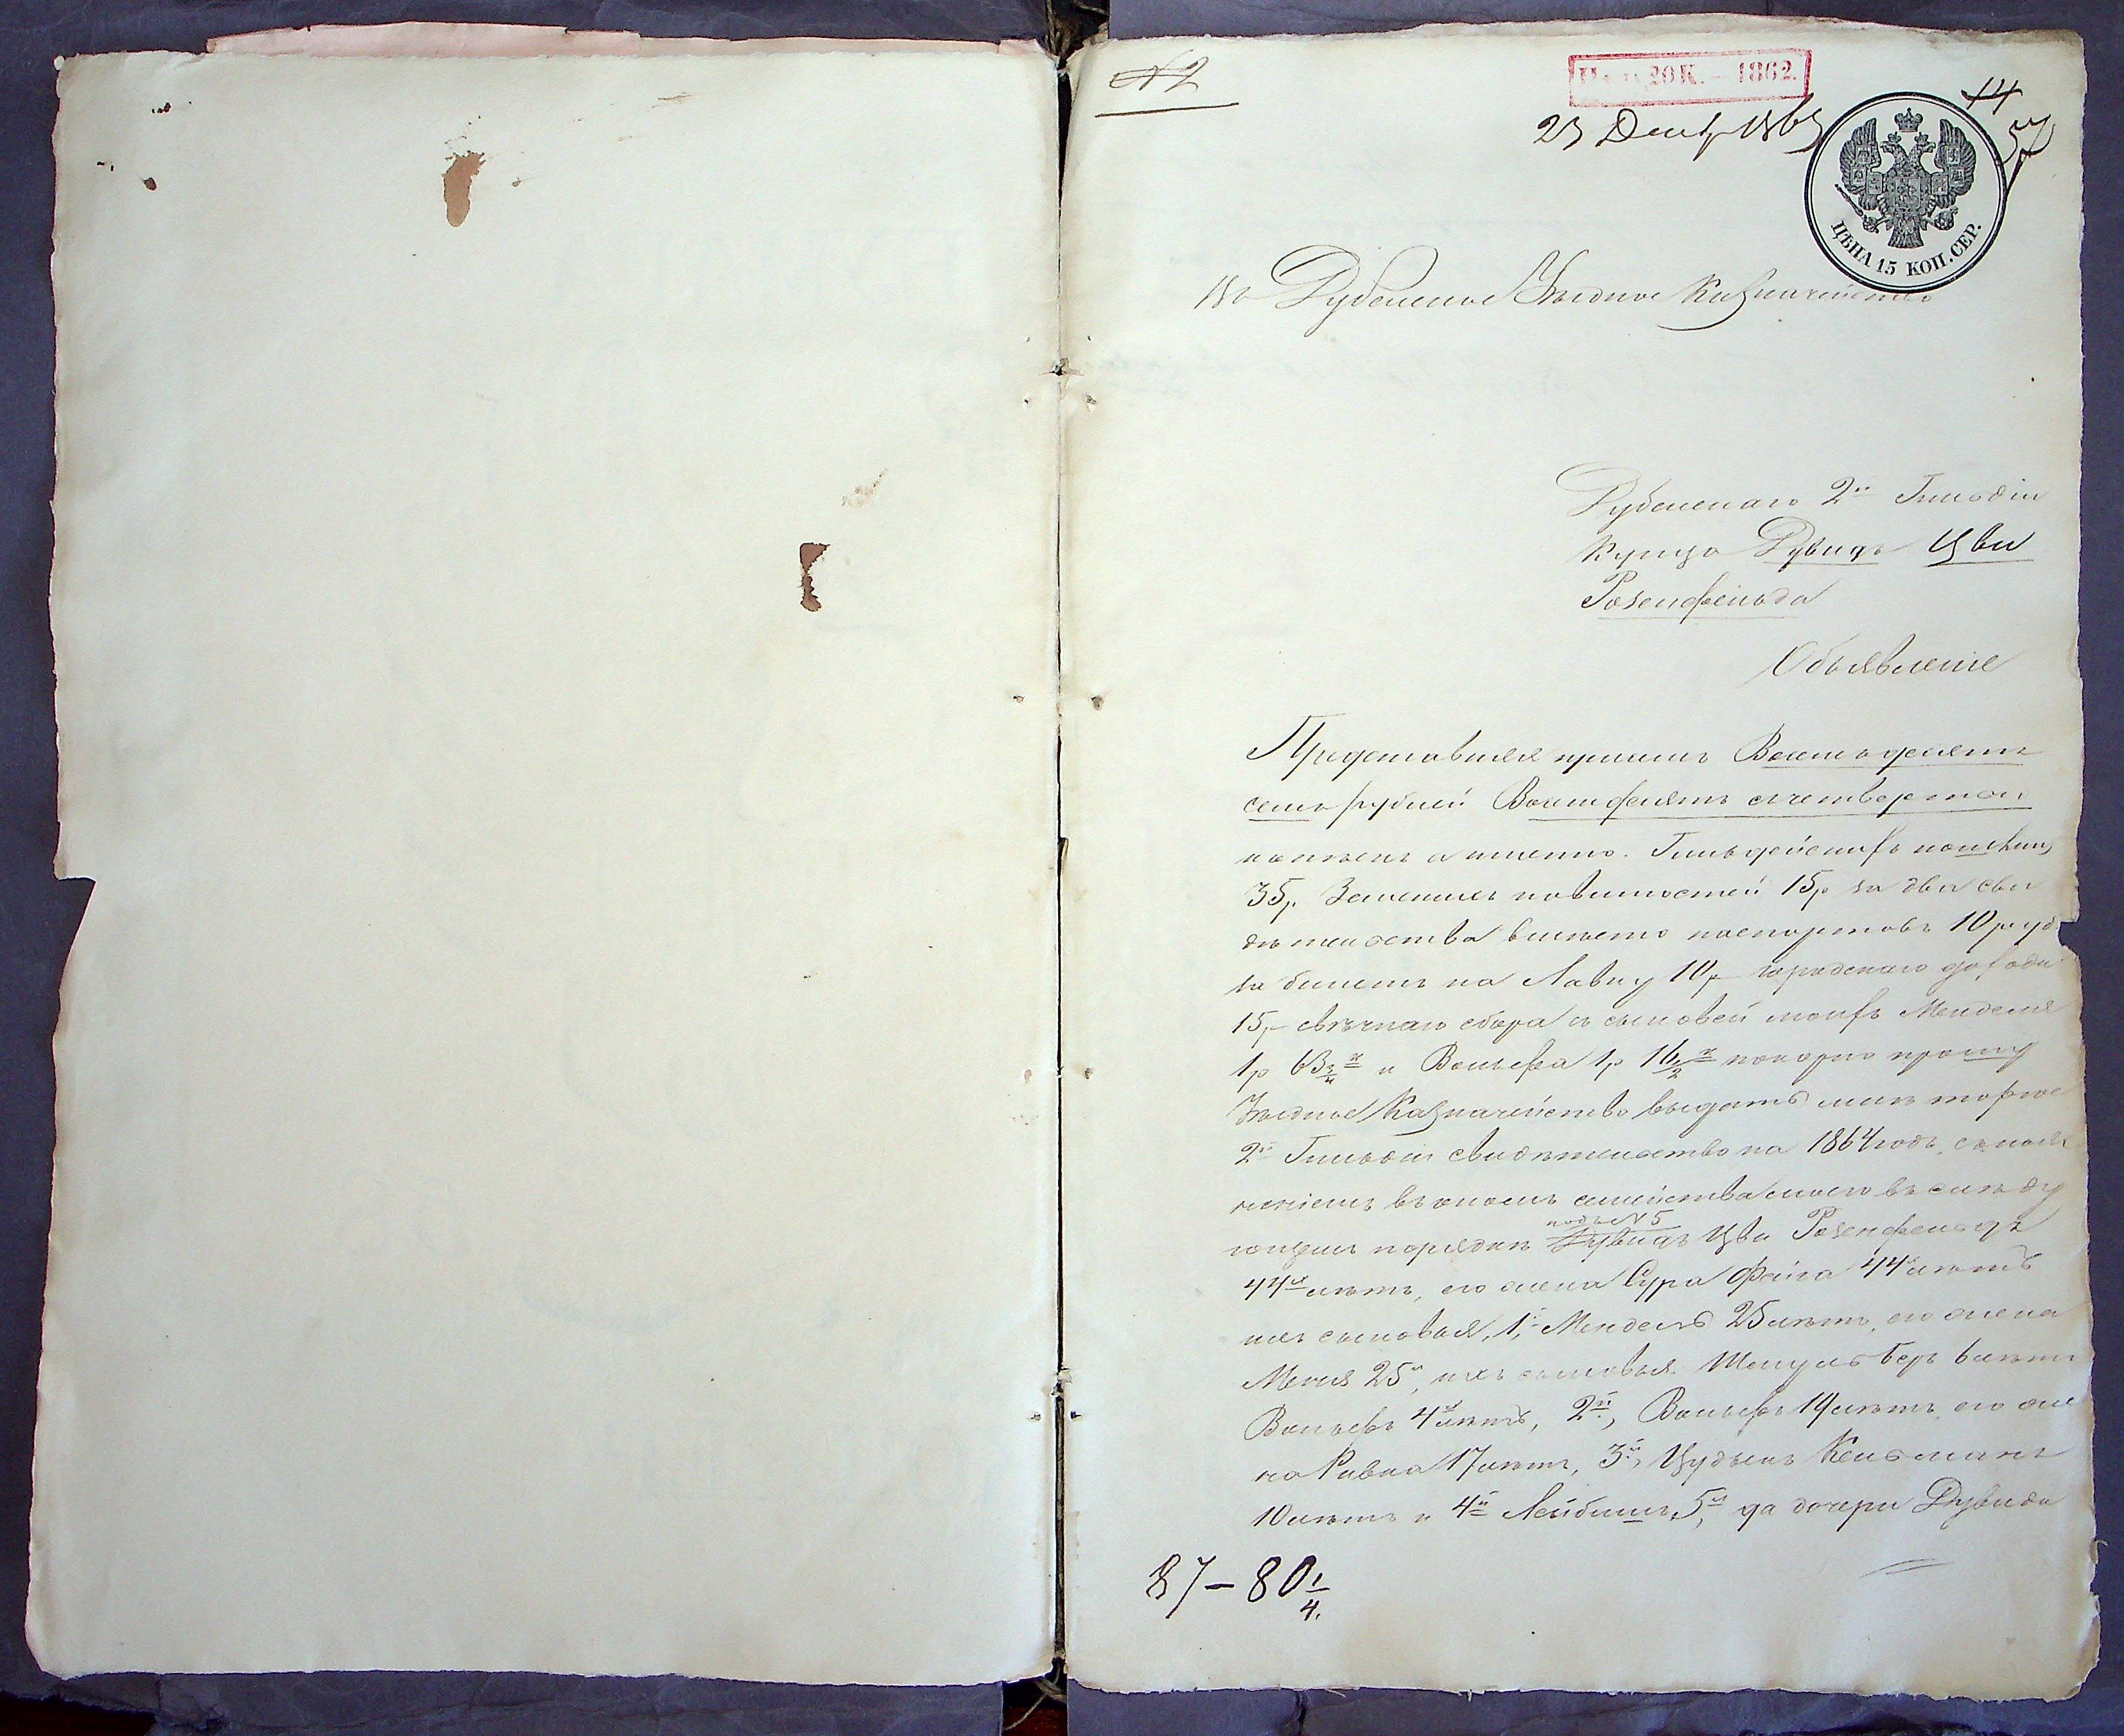 № 2
Цѣна 20 К. – 1862.
14
23 Декбр 1863
ЦѢНА 15 КОП. СЕР.
Въ Дубенское Уѣздное Казначейство
Дубенскаго 2й Гильдіи
Купца Дувидъ Цви
Розенфельда
Объявленіе
Представляя присемъ Восемьдесятъ
семь рублей Восимдесятъ счетвертою
копѣекъ а именно. Гильдейскихъ пошлинъ
35р. Земскихъ повинностей 15р за два сви
дѣтельства вмѣсто паспортовъ 10 руб
за билетъ на Лавку 10р городскаго дохода
15р свѣчнаго сбора и сыновей моихъ Менделя
1р 63 3/4 к и Вольфа 1р 16 1/2 к покорно прошу
Уѣздное Казначейство выдать мнѣ торгов
2й Гильдіи свидѣтельство на 1864 годъ, съ поя
неніемъ въ ономъ семейства моего въ слѣду
подъ N 5
ющемъ порядкѣ Дувидъ Цви Розенфельдъ
44х лѣтъ, его жена Сура Фейга 44х лѣтъ
ихъ сыновья, 1й Мендель 25 лѣтъ, его жена
Меня 25и, ихъ сыновья Шмуль Беръ 6 лѣтъ
Вольфъ 4х лѣтъ, 2й, Вольфъ 19 лѣтъ, его же
на Ривка 17 лѣтъ, 3й, Цудыкъ Кельманъ
10 лѣтъ и 4й Лейбишъ 5и, да дочери Дувида
87 – 80 1/4.